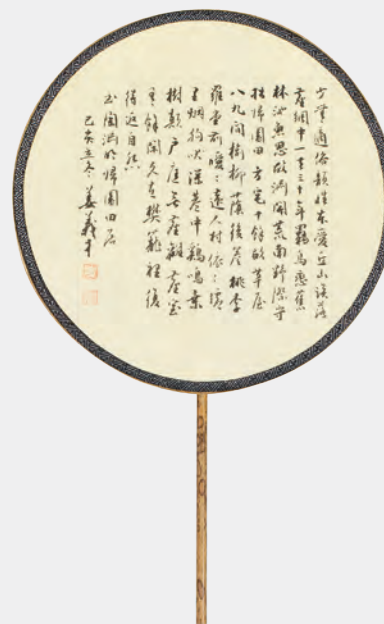 少無適俗韻性本愛丘山誤落
塵網中一去三十年羈鳥戀舊
林池魚思故淵開荒南野際守
拙歸園田方宅十餘畝草屋
八九間榆柳蔭後簷桃李
羅堂前曖〻遠人村依〻墟
里烟狗吠深巷中鷄鳴桑
樹顛戶庭無塵雜虛室
有餘閒久在樊籠裡復
得返自然
書陶淵明歸園田居
己亥立冬 姜義